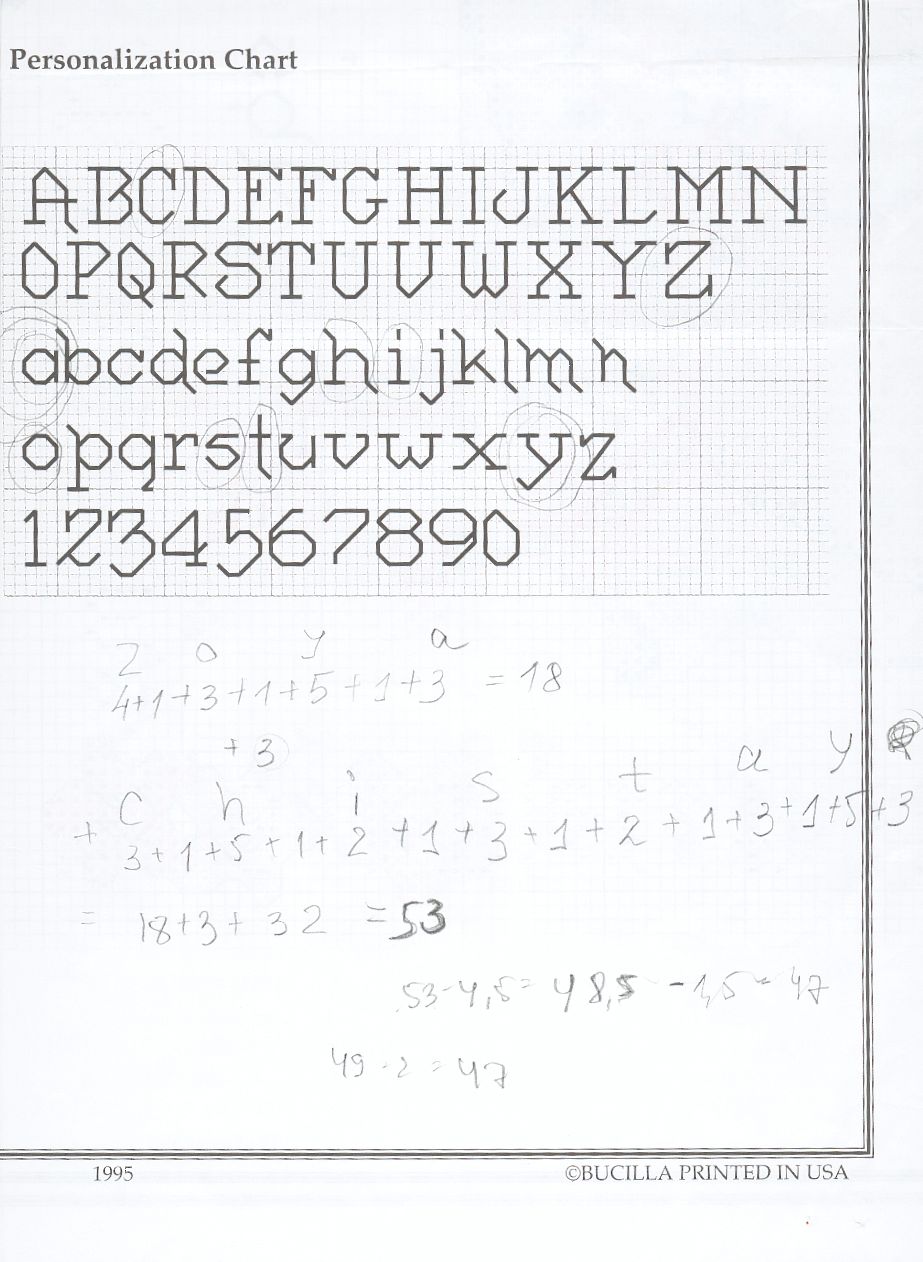 Personalization Chart
ABCDEFGHIJKLMN
OPQRSTUVWXYZ
abcdefghijklmn
opqrstuvwxyz
1234567890
Z o y a
4+1+3+1+5+1+3 = 18
+ 3
C h i s t a y
+ 3+1+5+1+2+1+3+1+2+1+3+1+5+3
= 18+3+32 = 53
53-4,5= 48,5 -1,5= 47
49-2=47
1995 ©BUCILLA PRINTED IN USA